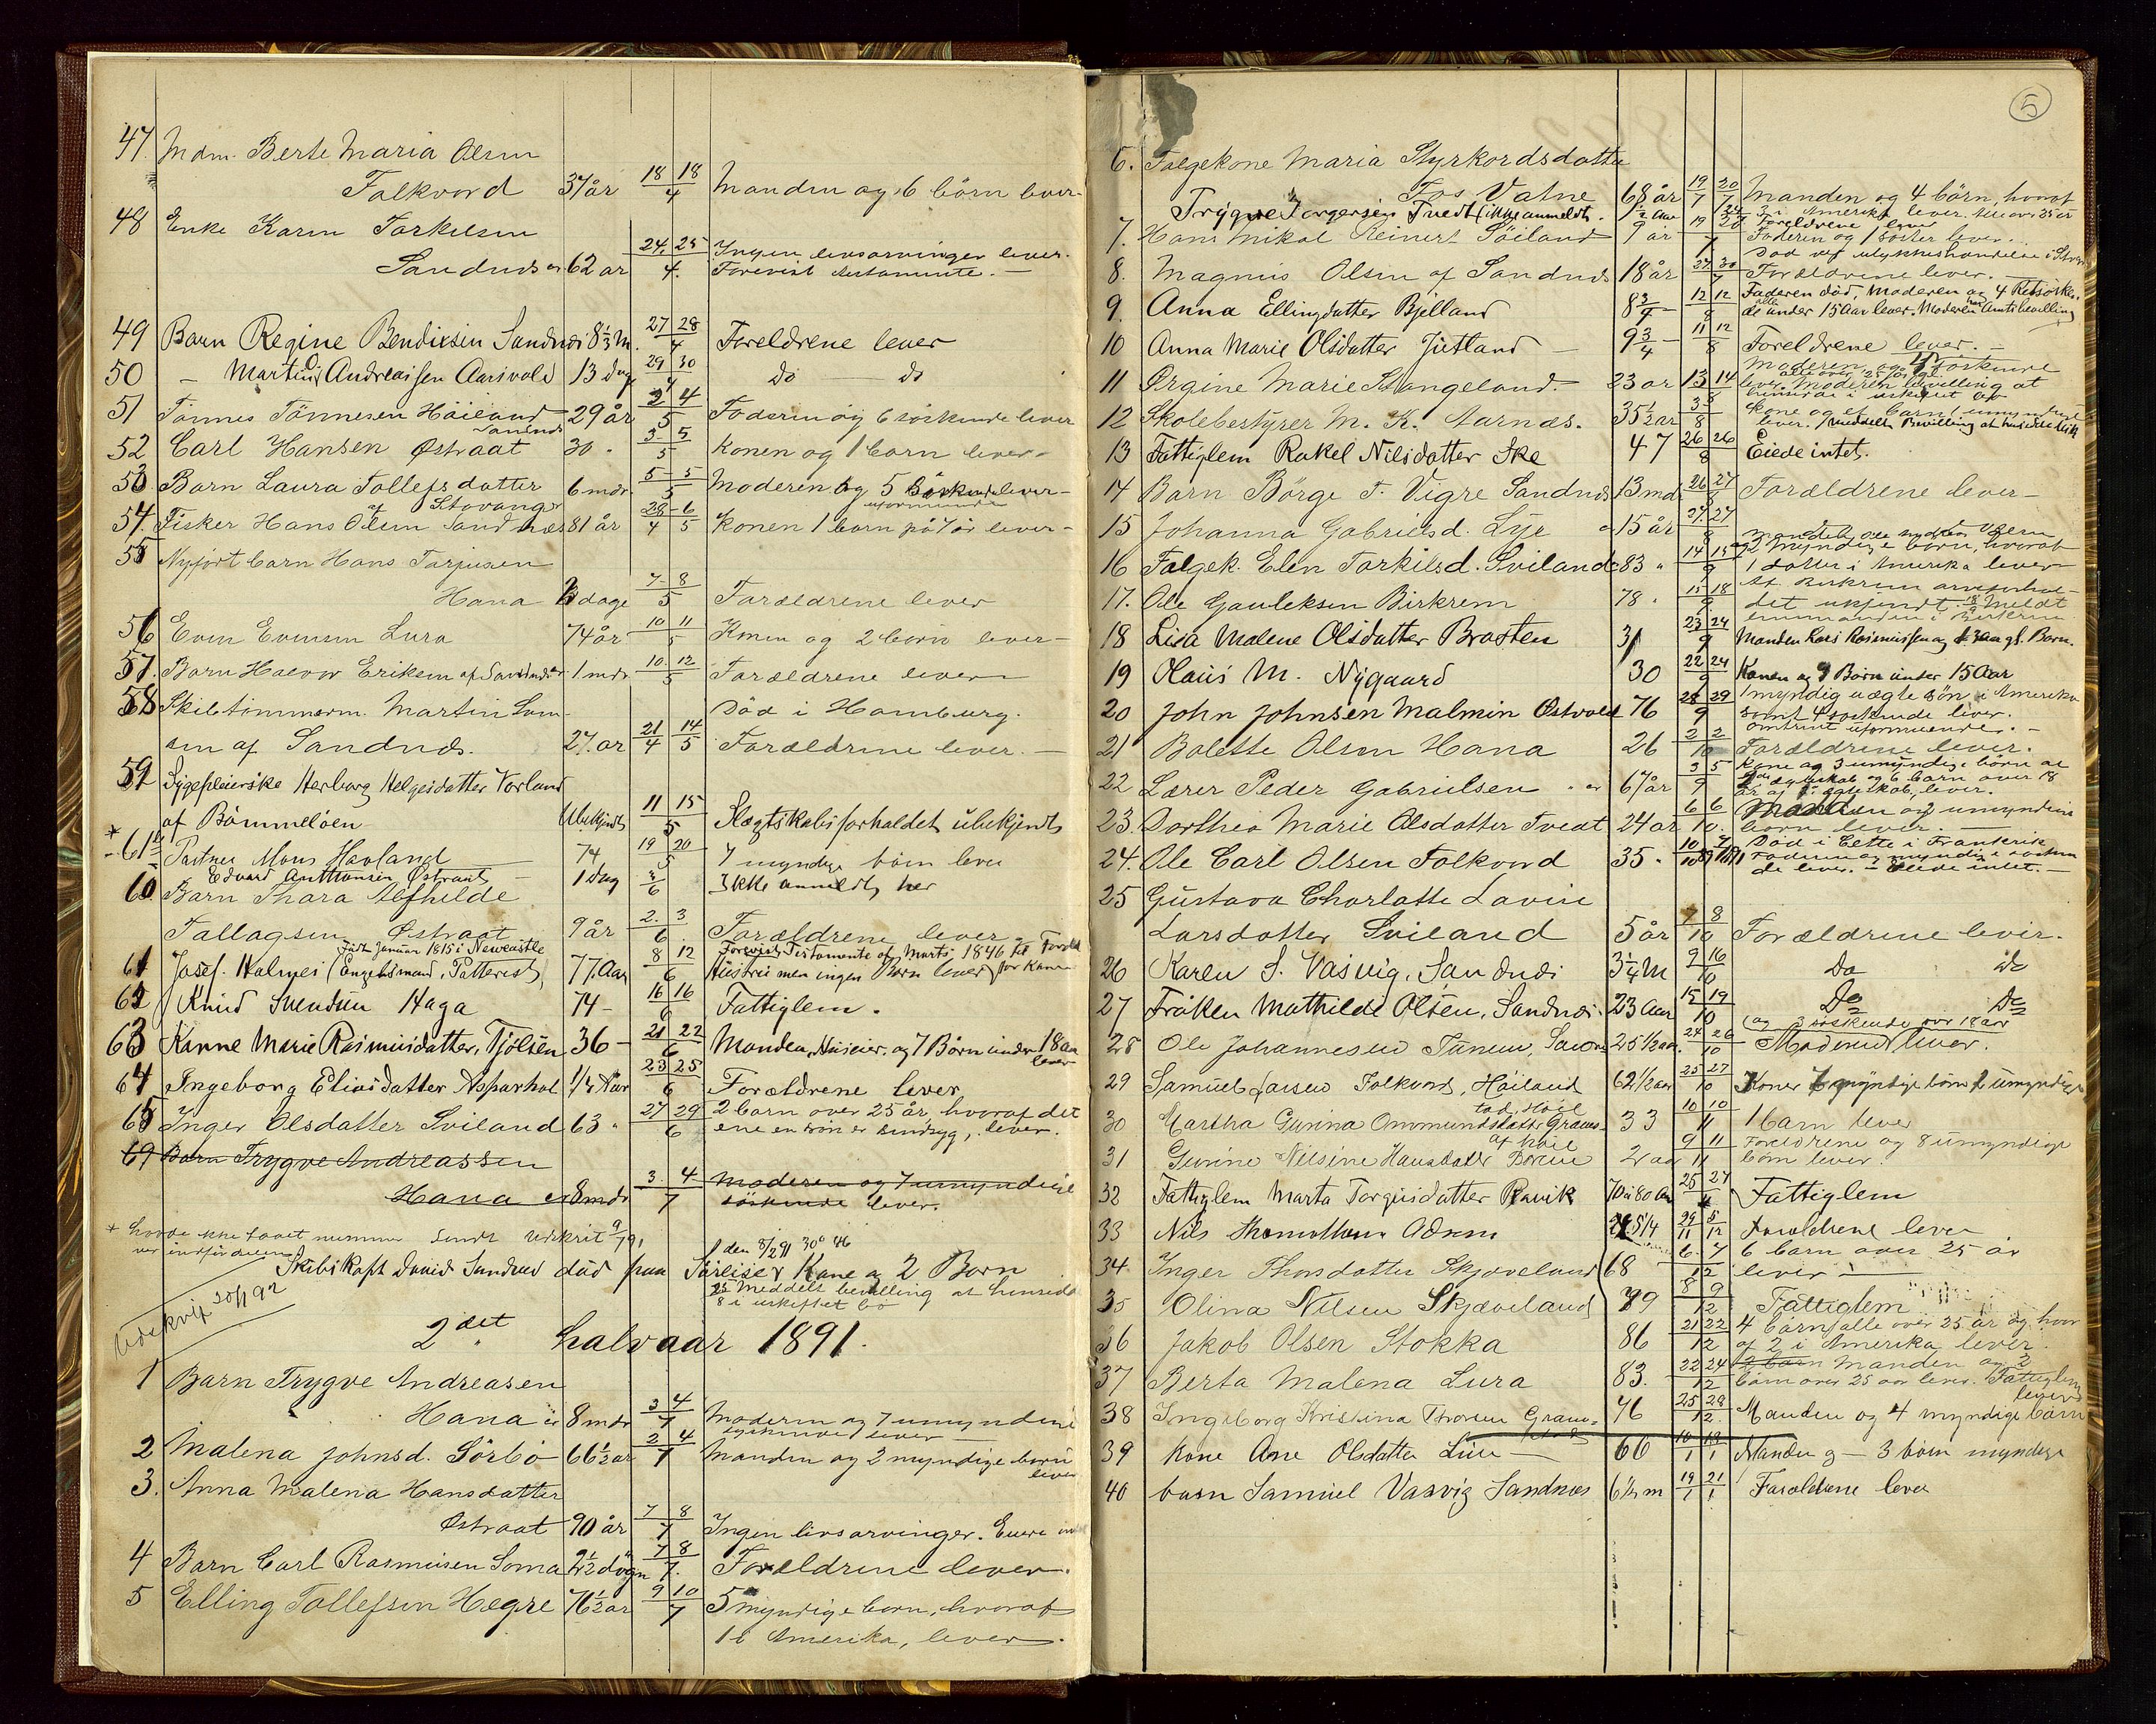 47. Mdm. Berte Maria Olsen
Folkvord 37 år 18/4 18/4 Manden og 6 börn lever
48 Enke Karen Torkelsen
Sandnds 62 år 24/4 25/4 Ingen livsarvinger lever.
Forevist testamente. —
49 Barn Regine Bendixsen Sandnes 8 1/3 M. 27/4 28/4 Foreldrene lever
50 - Martin Andreassen Aarsvold 13 dag 29/4 30/4 do — do
51 Tönnes Tönnesen Höiland Sandnds 29 år 2/5 4/5 Faderen og 6 söskende lever
52 Carl Hansen Østraat 30 " 3/5 5/5 Konen og 1 barn lever
53 Barn Laura Tollefsdatter 6 mdr 5/5 5/5 Moderen og 5 Söskende lever —
af Stavanger uformuende
54. Fisker Hans Olsen Sandnæs 81 år 28/4 6/5 Konen 1 barn på 7 år lever —
55 Nyfödt barn Hans Tarjusen
Hana dage 7/5 8/5 Forældrene lever
56 Even Evensen Lura 74 år 10/5 11/5 Konen og 2 börn lever —
57. Barn Halvor Eriksen af Sandnds 1 mdr 10/5 12/5 Forældrene lever
58 Skibtimmerm. Martin Död i Hamburg.
sen af Sandnds. 27 år 21/4 14/5 Forældrene lever. —
59 Sygepleierske Herborg Helgesdatter Vorland
af Bömmelöen Ubekjendt 11/5 15/5 Slægtskabsforholdet ubekjendt
* 61 1/2 Partner Mons Havland 74 19/5 20/5 7 myndige börn lever
Edvard Anthonsen Østraat — 1 dag 2/6 Ikke anmeldt her
60 Barn Thora Alfhilde
Tallagsen Østraat 9 år 2/6 3/6 Forældrene lever
Födt Januar 1815 i Newcastle Forevist Testamente af Marts 1846
61 Josef Halmes (Engelsmand, Patterist) 77 Aar 8/6 12/6 Hüstru men ingen Börn lever
62 Knud Svendsen Haga 74 - 16/6 16/6 Fattiglem.
63 Karine Marie Rasmusdatter, Tjølsen 36 - 21/6 22/6 Manden, Huseier, og 7 Börn under 18 aar
lever
64 Ingeborg Eliasdatter Aspervhol 1/4 Aar 23/6 25/6 Forældrene lever
65 Inger Olsdatter Sviland 63 " 27/6 29/6 2 barn over 25 år, hvoraf det
ene en sön er sindsyg, lever.
69 Barn Trygve Andreassen
Hana 8 mdr 3/7 4/7 Moderen og 7 umyndige
söskende lever.
* havde ikke faaet nummer Sendt Udskrit 9/7 91
den 5/2 91 30° 46
Skibskapt David Sandved död Kone og 2 Born
25/8 Meddelt bevilling at hensidde
i uskiftet bo
Udskrift 20/1 92
2det halvaar 1891.
1 Barn Trygve Andreasen
Hana 8 mdr 3/7 4/7 Moderen og 7 umyndene
söskende lever —
2 Malena Johnsd. Sörbö 66 1/2 år 2/7 4/7 Manden og 2 myndige börn
lever
3. Anna Malena Hansdatter
Østraat 90 år 7/7 8/7 Ingen livsarvinger.
4 Barn Carl Rasmusen Soma 2 1/2 dögn 7/7 8/7 Forældrene lever.
5 Elling Tollefsen Hegre 76 1/2 år 9/7 10/7 5 myndige born, hvoraf
1 i Amerika, lever.
5
6. Folgekone Maria Styrkordsdatter
Fos Vatne 68 år 19/7 20/7 Manden og 4 börn, hvoraf
3 i Amerika lever.
Trygve Torgersen Tvedt (ikke anmeldt. 1/2 Aar Foreldrene lever
7. Hans Mikal Reinert Söiland 9 år 19/7 20/7 Faderen og 1 söster lever.
Död ved ulykkeshændelse i
8. Magnus Olsen af Sandnds 18 år 27/7 30/7 Forældrene lever. —
9. Anna Ellingdatter Bjelland 8 3/4 - 12/8 12/8 Faderen död, Moderen og 4
alle under 15 Aar lever. Moderen har Amts bevilling
10 Anna Marie Olsdatter Jutland — 9 3/4 - 11/8 12/8 Foreldrene lever. —
11 Ørgine Marie Stangeland — 23 år 13/8 14/8 Moderen og söskende
lever. Moderen bevilling at
hensidde i uskiftet bo
12 Skolebestyrer M. K. Aarnæs. 35 1/2 år 3/8 Kone og et barn
lever.
13 Fattiglem Rakel Nilsdatter Ske 47 26/8 26/8 Eiede intet.
14 Barn Börge T. Vigre Sandnds 13 md. 26/8 27/8 Forældrene lever —
15 Johanna Gabrielsd. Lye 15 år 27/8 27/8
16 Folgek. Elen Torkilsd. Sviland 83 " 14/9 15/9 2 myndige börn, hvoraf
1 datter i Amerika lever
17. Ole Gauleksen Birkrem 78 " 15/9 18/9
det ukjendt. Meldt
lensmanden i Birkrem
18 Lisa Malene Olsdatter Brasten 31 23/9 24/9 Manden Lars Rasmussen og 3 aar gl. Barn.
19 Olaus M. Nygaard 30 22/9 24/9 Konen og 9 Born under 15 Aar
20 John Johnsen Malmin Østvold 76 28/9 29/9 1 myndig uægte sön i Amerika
samt 4 söskende lever.
omtrent uformuende. —
21 Bolette Olsen Hana 26 2/10 2/10 Forældrene lever.
22 Lærer Peder Gabrielsen 67 år 3/9 5/9 Kone og 3 umyndige börn af
ægteskab og 6 barn over 18
år af 1. ægteskab lever.
23. Dorthea Marie Olsdatter Tvedt 24 år 6/10 6/10 Manden og 2 umyndige
born lever. —
24. Ole Carl Olsen Folkvord 35 " 10/10 Död i Cette i Frankrik
Faderen og myndige
de lever. — Eiede intet. —
25 Gustava Charlotte Lavise
Larsdatter Sviland 5 år 7/10 8/10 Forældrene lever.
26 Karen S. Vasvig, Sandnes 3 1/4 M 9/10 16/10 Do Do
27 Fröken Mathilde Olsen, Sandnes. 23 Aar 15/10 19/10 Do Do
og 3 söskende over 18 år
28 Ole Johannesen Tunem, 25 1/2 aar 24/10 26/10 Moderen lever.
29 Samuel Larsen Folkvord, Höiland 62 1/2 aar 25/10 27/10 Konen myndige börn umyndige
30 Martha Gurina Ommundsdatter 33 10/11 10/11 1 Barn lever
31 Gurine Nilsine Hansdatter af Höil 2 aar 9/11 11/11 Foreldrene og 8 umyndige
börn lever.
32 Fattiglem Marta Torgersdatter Ravik 70 à 80 Aar 25/11 27/11 Fattiglem
33 Nils Adsen 5 1/4 29/11 5/12 Foreldrene lever
34. Inger Thorsdatter Skjæveland 68 6/12 7/12 6 barn over 25 år
lever —
35 Olina Nilsen Skjæveland 79 8/12 9/12 Fattiglem
36 Jakob Olsen Stokka 86 21/12 22/12 4 börn, alle over 25 år og hvor
af 2 i Amerika lever.
37 Berta Malena Lura 83. 22/12 24/12 2 barn Manden og 2
börn over 25 aar lever. Fattiglem
38 Ingeborg Kristina Thorsen 46 25/12 29/12 Manden og 4 myndige börn
lever
39 Kone Ane Olsdatter Lure — 66 10/1 Manden og — 3 börn myndige
40 barn Samuel Vasvig Sandnes 6 1/2 m 19/1 21/1 Forældrene lever